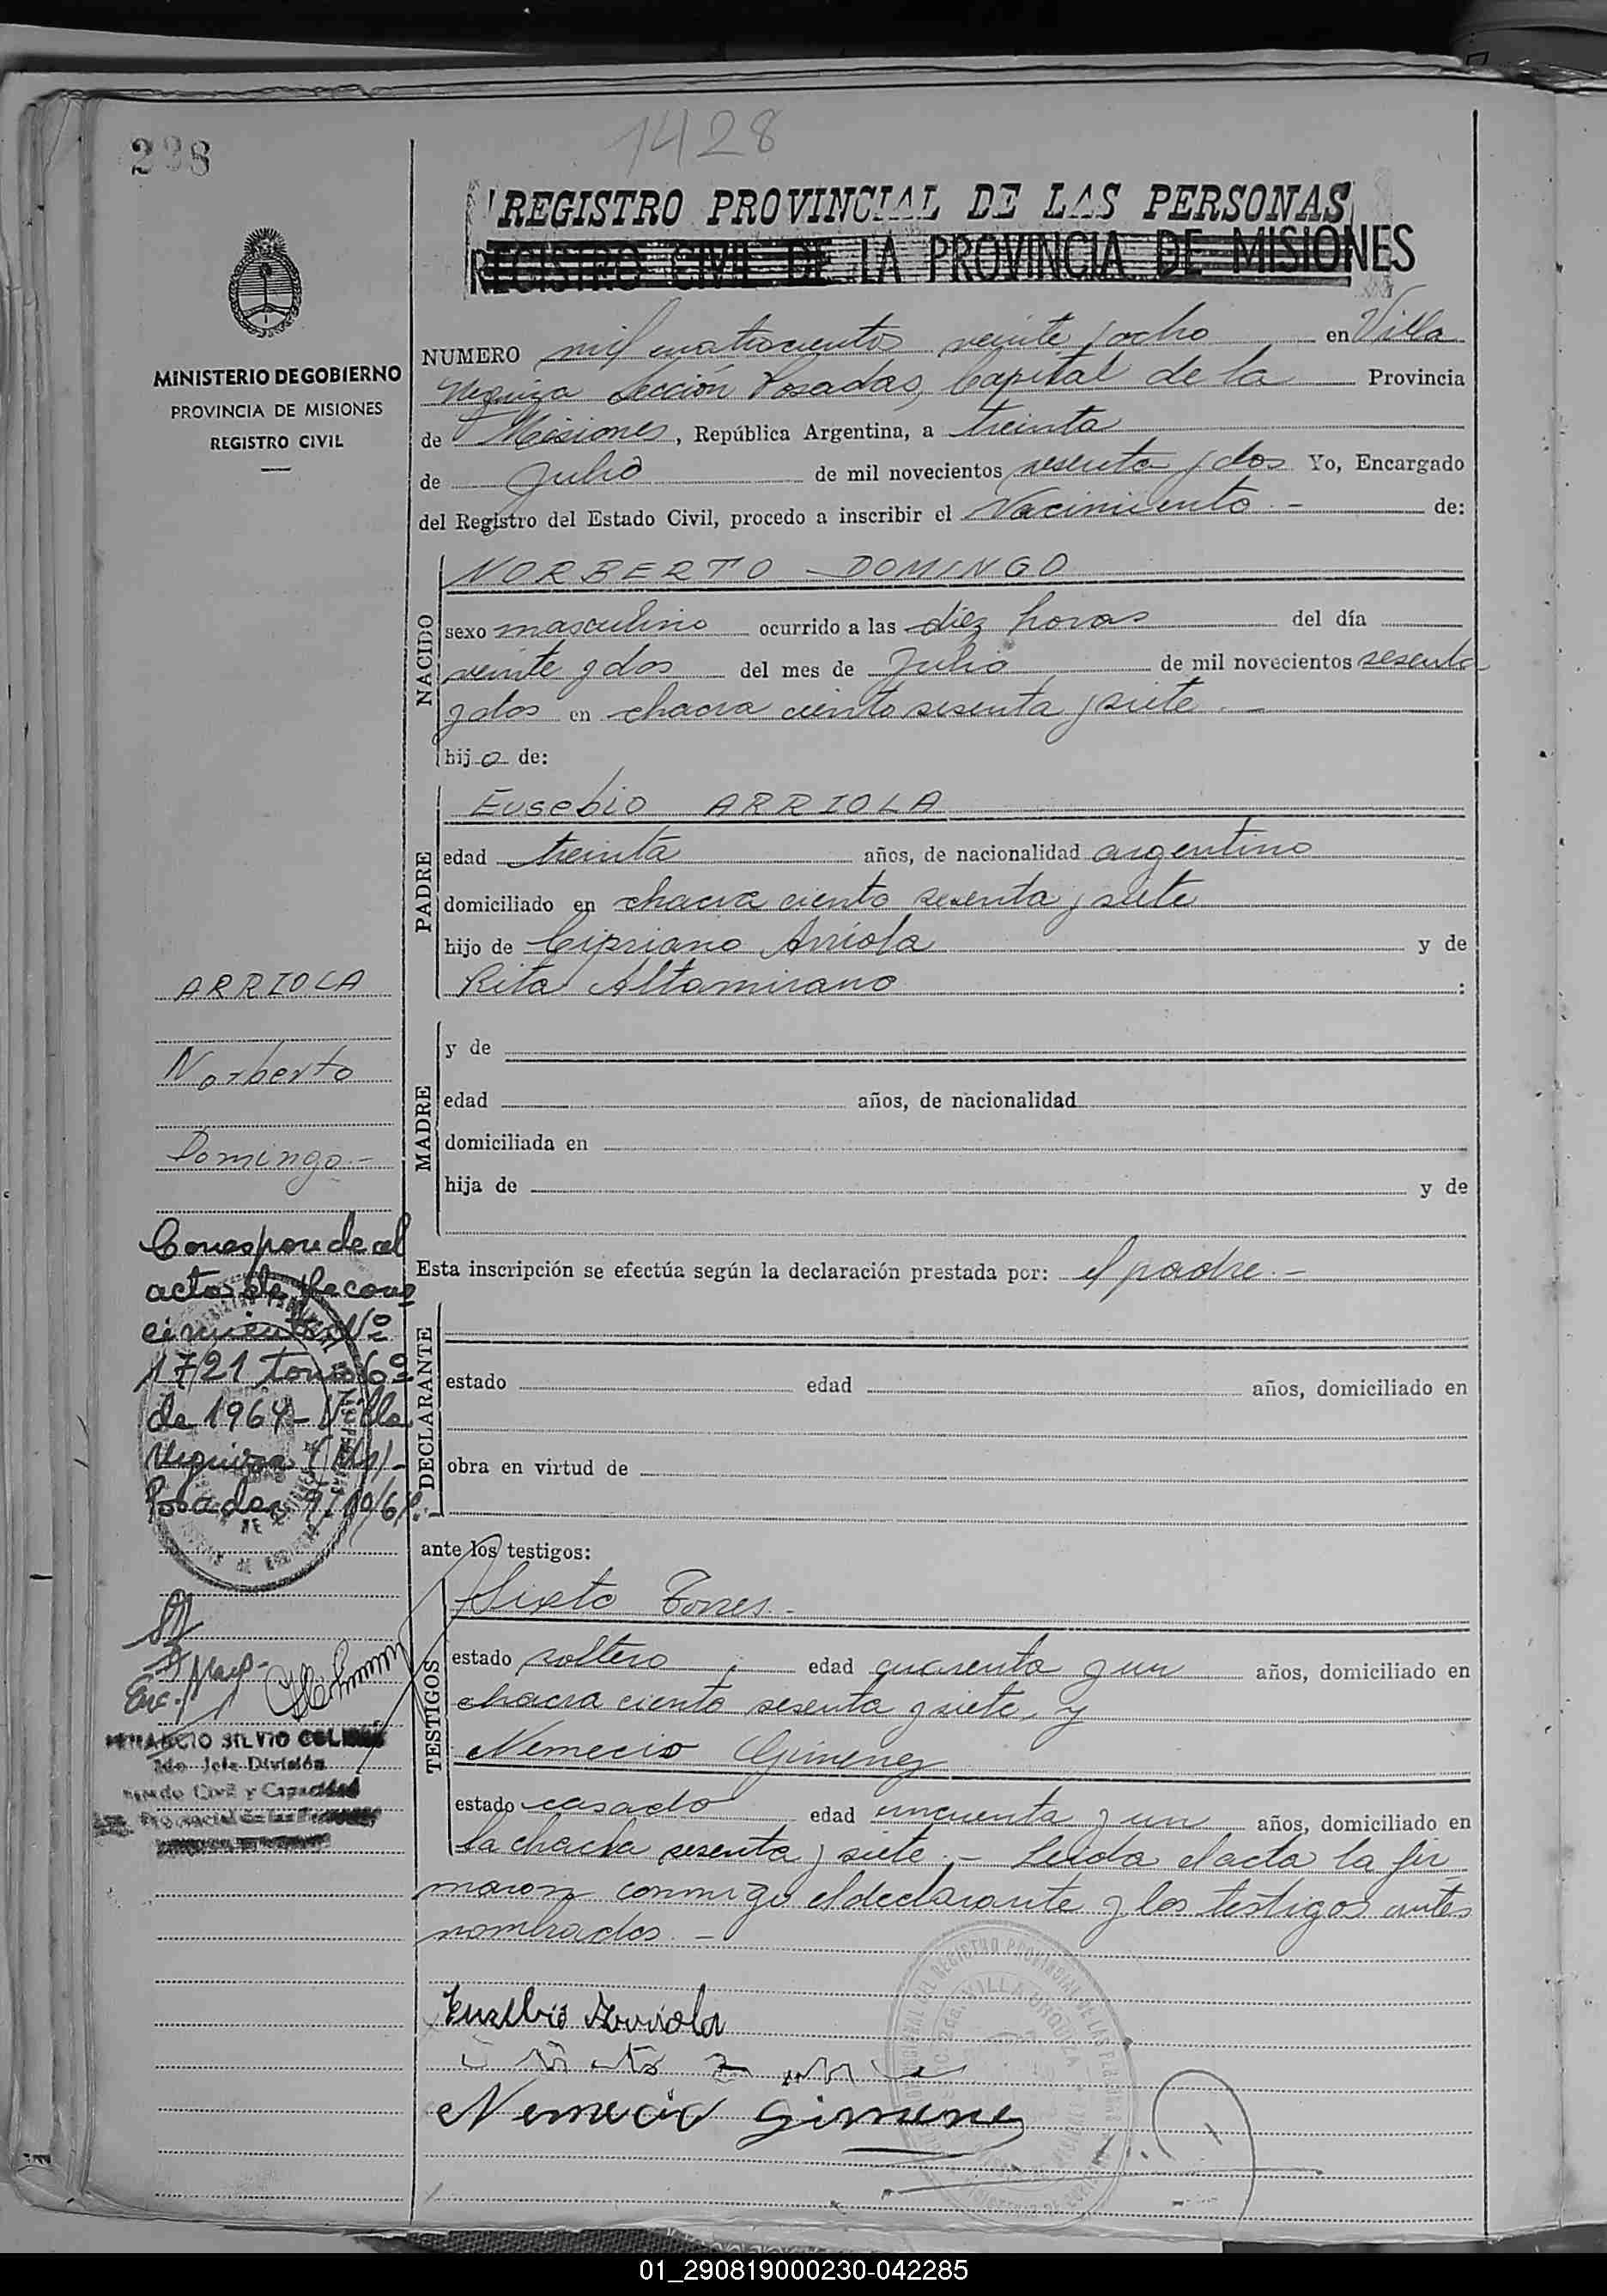 238
1428
REGISTRO PROVINCIAL DE LAS PERSONAS
REGISTRO CIVIL DE LA PROVINCIA DE MISIONES
MINISTERIO DE GOBIERNO
PROVINCIA DE MISIONES
REGISTRO CIVIL
NUMERO mil cuatrocientos veinte y ocho en Villa
Urquiza Sección Posadas, Capital de la Provincia
de Misiones, República Argentina, a treinta
de Julio de mil novecientos sesenta y dos Yo, Encargado
del Registro del Estado Civil, procedo a inscribir el Nacimiento.- de:
NACIDO
NORBERTO DOMINGO
sexo masculino ocurrido a las diez horas del día
veinte y dos del mes de Julio de mil novecientos sesenta
y dos en chacra ciento sesenta y siete.-
hijo de:
PADRE
Eusebio ARRIOLA
edad treinta años, de nacionalidad argentino
domiciliado en chacra ciento sesenta y siete
hijo de Cipriano Arriola y de
Rita Altamirano :
MADRE
y de
edad años, de nacionalidad
domiciliada en
hija de y de
Esta inscripción se efectúa según la declaración prestada por: el padre.-
DECLARANTE
estado edad años, domiciliado en
obra en virtud de
ante los testigos:
TESTIGOS
Sixto Torres.-
estado soltero edad cuarenta y un años, domiciliado en
chacra ciento sesenta y siete, y
Nemecio Gimenez
estado casado edad cincuenta y un años, domiciliado en
la chacra sesenta y siete.- Leida el acta la fir
maron conmigo el declarante y los testigos antes
nombrados.-
Eusebio Arriola
Nemecio Gimenez
ARRIOLA
Norberto
Domingo.-
Corresponde al
acta de Recono
cimiento Nº
1721 tomo 6º
de 1964- Villa
Urquiza (Mnes)-
Posadas 9/10/64.-
SILVIO
2do. Jefe División
Estado Civil y Capacidad
Provincial de las Personas
VILLA URQUIZA
01_290819000230-042285